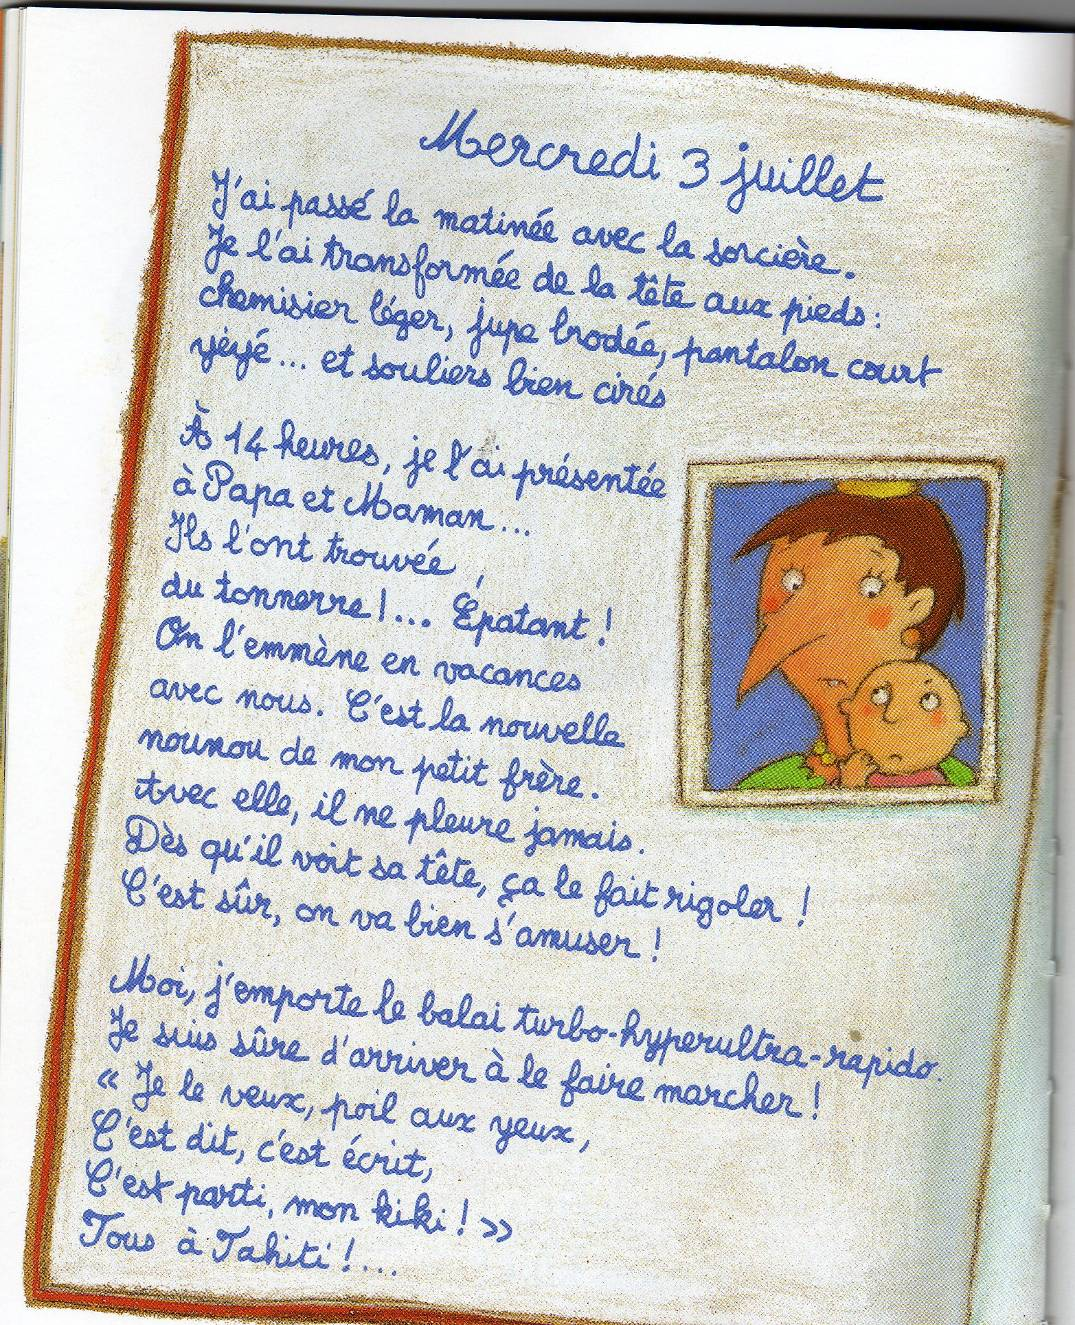 Mercredi 3 juillet
J'ai passé la matinée avec la sorcière.
Je l'ai transformée de la tête aux pieds :
chemisier léger, jupe brodée, pantalon court
yéyé... et souliers bien cirés
À 14 heures, je l'ai présentée
à Papa et Maman...
Ils l'ont trouvée
du tonnerre !... Épatant !
On l'emmène en vacances
avec nous. C'est la nouvelle
nounou de mon petit frère.
Avec elle, il ne pleure jamais.
Dès qu'il voit sa tête, ça le fait rigoler !
C'est sûr, on va bien s'amuser !
Moi, j'emporte le balai turbo-hyperultra-rapido.
Je suis sûre d'arriver à le faire marcher !
« Je le veux, poil aux yeux,
C'est dit, c'est écrit,
C'est parti, mon kiki ! »
Tous à Tahiti !...